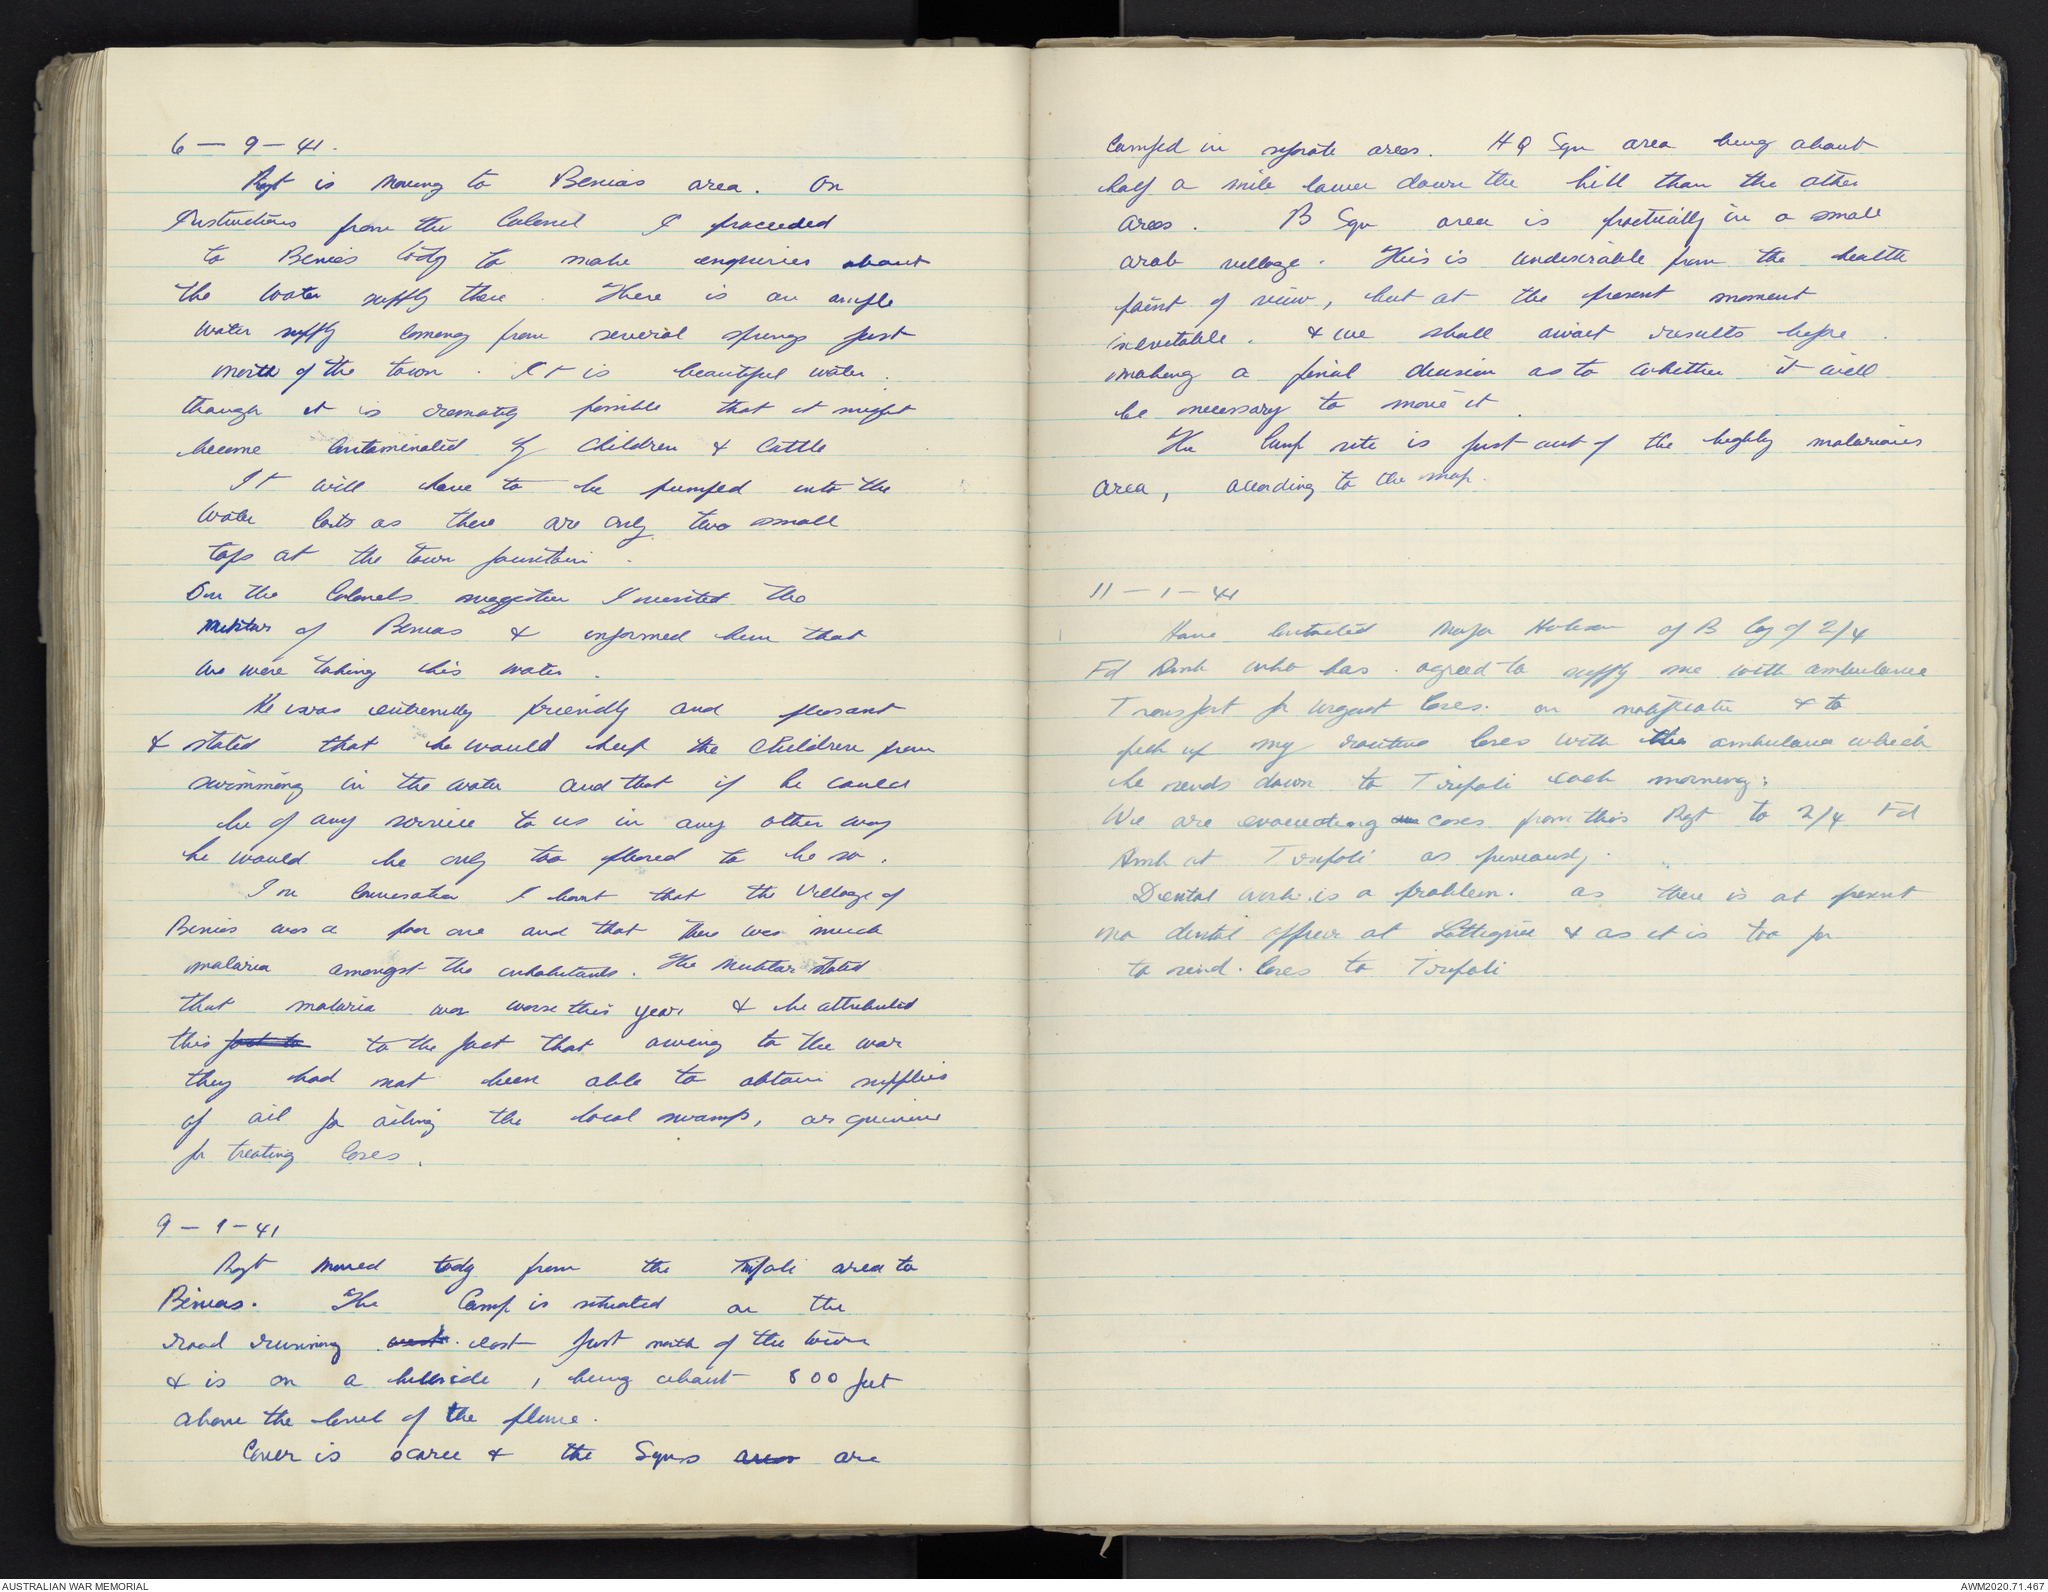 6 - 9 - 41.
Rgt is moving to Benias area. On
Instructions from the Colonel I proceeded
to Benias tody to make enquiries about
the water supply there. There is an ample
water supply coming from several springs just
north of the town. It is beautiful water.
though it is remotely possible that it might
become contaminated by children & cattle
It will have to be pumped into the
water carts as there are only two small
taps at the town fountain.
On the Colonels suggestion I visited the
Muktar of Benias & informed him that
we were taking this water.
He was extremely friendly and pleasant
& stated that he would keep the children from
swimming in the water and that if he could
be of any service to us in any other way
he would be only too pleased to be so.
In conversation I learnt that the village of
Benias was a poor one and that there was much
malaria amongst the inhabitants. The Muktar stated
that malaria was worse this year & he attributed
this fact to to the fact that owing to the war
they had not been able to obtain supplies
of oil for oiling the local swamps, or quinine
for treating cases.
9 - 9 - 41
Rgt moved tody from the Tripoli area to
Benias. The Camp is situated on the
road running west. east just north of the town
& is on a hillside, being about 800 feet
above the level of the plane.
Cover is scarce & the Sqns areas are
camped in separate areas. HQ Sqn area being about
half a mile lower down the hill than the other
areas. B Sqn area is practically in a small
arab village. This is undesirable from the health
point of view, but at the present moment
inevitable. & we shall await results before.
making a final decision as to whether it will
be necessary to move it.
The Camp site is just out of the highly malarious
area, according to the map.
11 - 9 - 41
Have contacted Major of B Coy of 2/4
Fd Amb who has agreed to supply me with ambulance
Transport for urgent cases. on notification & to
pick up my routine cases with the ambulance which
he sends down to Tripoli each morning:
We are evacuating cases from this Rgt to 2/4 Fd
Amb at Tripoli as previously.
Dental work is a problem. as there is at present
no dental officer at Lattaquie & as it is too far
to send. cases to Tripoli
AUSTRALIAN WAR MEMORIAL
AWM2020.71.467